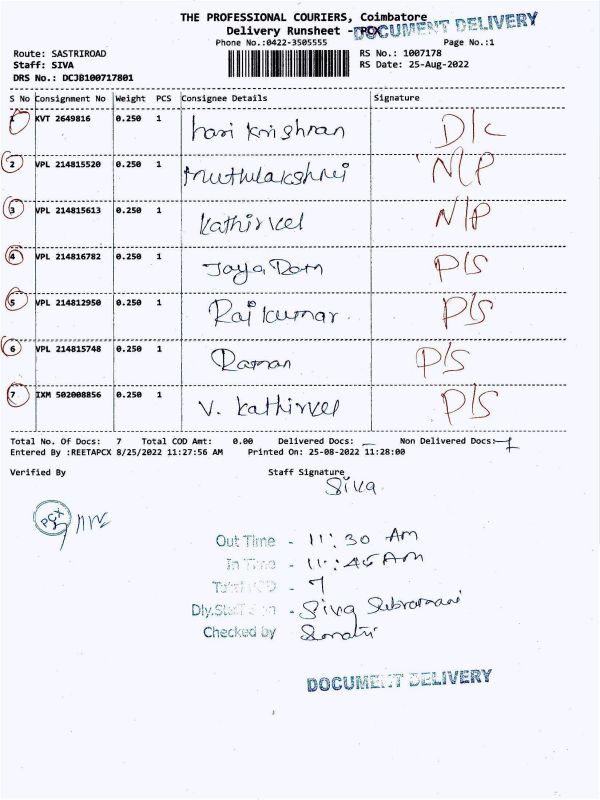 THE PROFESSIONAL COURIERS, Coimbatore
DOCUMENT DELIVERY
Delivery Runsheet - PCX
Phone No.:0422-3505555 Page No.:1
Route: SASTRIROAD RS No.: 1007178
Staff: SIVA RS Date: 25-Aug-2022
DRS No.: DCJB100717801
S No Consignment No Weight PCS Consignee Details Signature
1 KVT 2649816 0.250 1 hari Krishnan D/C
2 VPL 214815520 0.250 1 Muthulakshmi N/P
3 VPL 214815613 0.250 1 Kathirvel N/P
4 VPL 214816782 0.250 1 Jaya Ram P/S
5 VPL 214812950 0.250 1 Raj kumar P/S
6 VPL 214815748 0.250 1 Raman P/S
7 IXM 502008856 0.250 1 V. Kathirvel P/S
Total No. Of Docs: 7 Total COD Amt: 0.00 Delivered Docs: - Non Delivered Docs:- 7
Entered By :REETAPCX 8/25/2022 11:27:56 AM Printed On: 25-08-2022 11:28:00
Verified By Staff Signature
Siva
PCX
Out Time - 11:30 Am
In Time - 11:45 Am
Total COD - 7
Dly.Staff Sign - Siva Subramani
Checked by
DOCUMENT DELIVERY